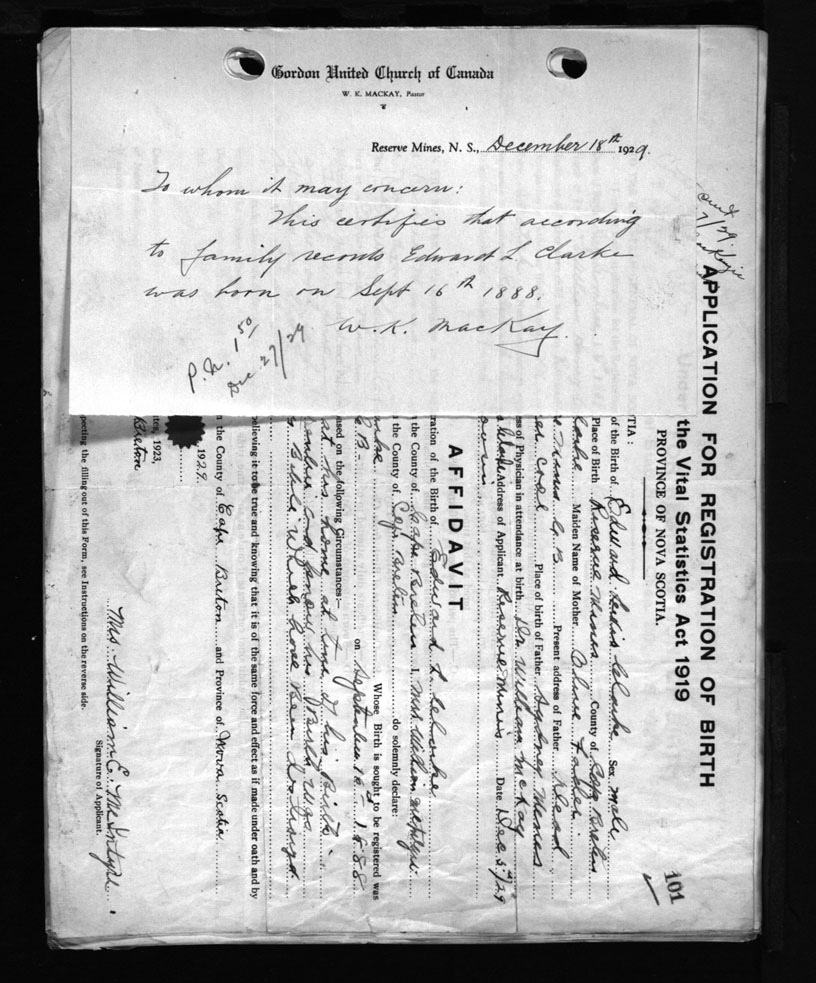 Gordon United Church of Canada
W. K. MACKAY, Pastor
Reserve Mines, N. S., December 18th 1929.
To whom it may concern:
This certifies that according
to family records Edward L Clarke
was born on Sept 16th 1888.
W. K. MacKay.
P.N. 1 50
Dec 27/29
APPLICATION FOR REGISTRATION OF BIRTH
the Vital Statistics Act 1919
PROVINCE OF NOVA SCOTIA.
101
TIA:
of the Birth of Edward Clarke Sex male
Place of Birth Reserve Mines County of Cape Breton
Maiden Name of Mother
Present address of Father Dead
Place of birth of Father Sydney Mines
ess of Physician in attendance at birth Dr. William McKay
Address of Applicant Reserve Mines Date Dec 5th/29
AFFIDAVIT
ration of the Birth of Edward L.
the County of Cape Breton I, Mrs William
the County of Cape Breton do solemnly declare:
Whose Birth is sought to be registered was
C B on September 16th 1888
ased on the following Circumstances:-
at his home at time of his Birth.
and his Birth was
Bible which have been destroyed
believing it to be true and knowing that it is of the same force and effect as if made under oath and by
the County of Cape Breton and Province of Nova Scotia
1929.
1923,
Breton
Mrs. William C. McIntyre
Signature of Applicant.
pecting the filling out of this Form, see Instructions on the reverse side.